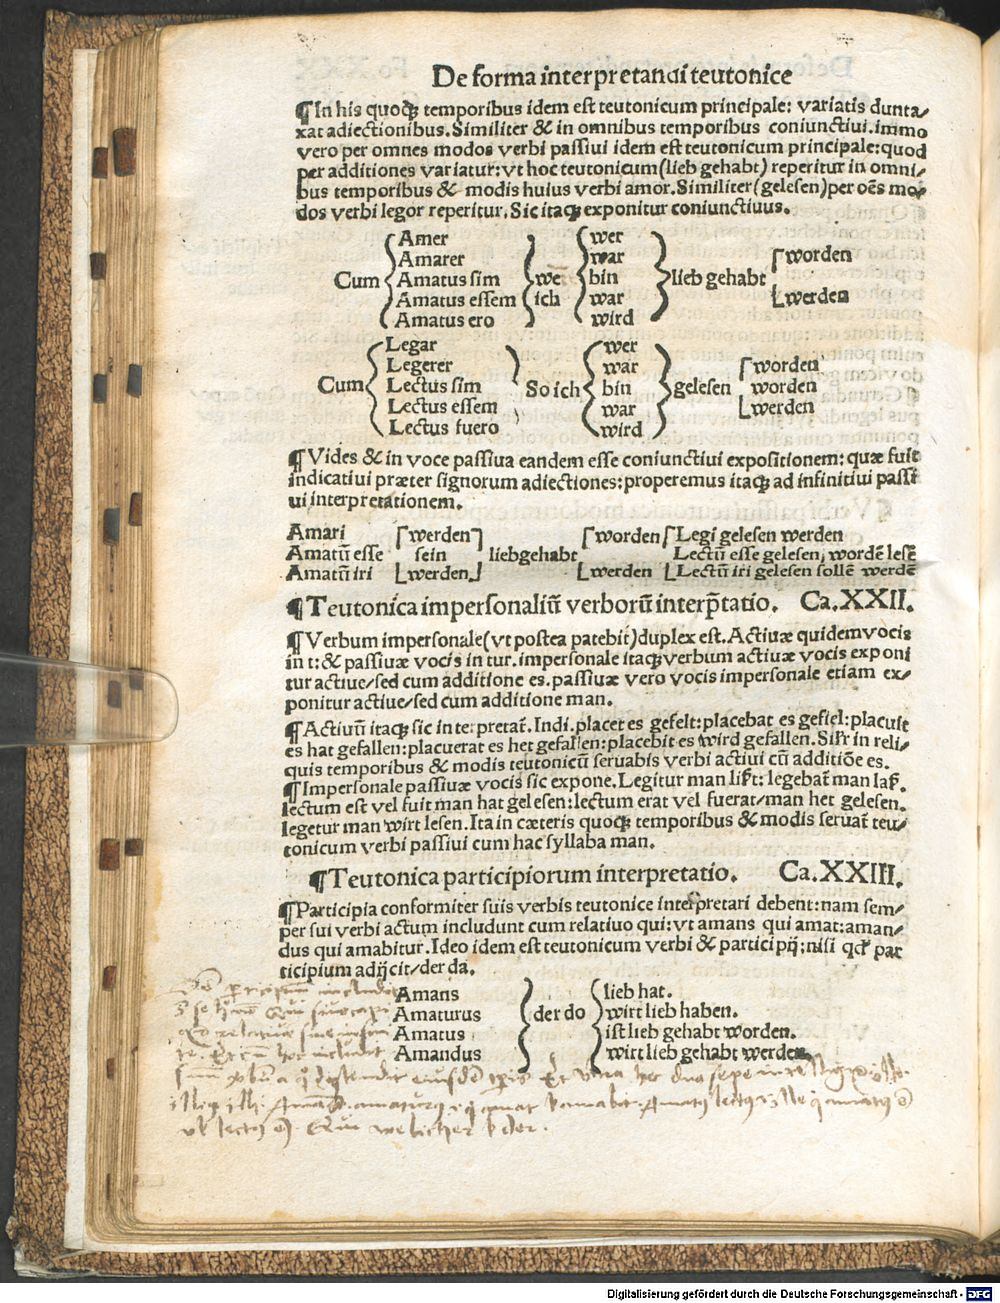 De forma interpretandi teutonice
¶In his quoqꝫ temporibus idem est teutonicum principale: variatis dunta/
xat adiectionibus. Similiter & in omnibus temporibus coniunctiui. immo
vero per omnes modos verbi passiui idem est teutonicum principale: quod
per additiones variatur: vt hoc teutonicum (lieb gehabt) reperitur in omni/
bus temporibus & modis huius verbi amor. Similiter (gelesen) per oēs mo/
dos verbi legor reperitur. Sic itaqꝫ exponitur coniunctiuus.
Amer wer
Amarer war worden
Cum Amatus sim we bin lieb gehabt
Amatus essem ich war werden
Amatus ero wird
Legar wer
Legerer war worden
Cum Lectus sim So ich bin gelesen worden
Lectus essem war werden
Lectus fuero wird
¶Vides & in voce passiua eandem esse coniunctiui expositionem: quæ fuit
indicatiui præter signorum adiectiones: properemus itaqꝫ ad infinitiui passi
ui interpretationem.
Amari werden worden Legi gelesen werden
Amatū esse sein liebgehabt Lectū esse gelesen, wordē lesē
Amatū iri werden werden Lectū iri gelesen sollē werdē
¶Teutonica impersonaliū verborū interp̄tatio. Ca.XXII.
¶Verbum impersonale (vt postea patebit) duplex est. Actiuæ quidem vocis
in t: & passiuæ vocis in tur. impersonale itaqꝫ verbum actiuæ vocis exponi
tur actiue/ sed cum additione es. passiuæ vero vocis impersonale etiam ex/
ponitur actiue/ sed cum additione man.
¶Actiuū itaqꝫ sic interpretat̄. Indi. placet es gefelt: placebat es gefiel: placuit
es hat gefallen: placuerat es het gefallen: placebit es wird gefallen. Sil̄r in reli/
quis temporibus & modis teutonicū seruabis verbi actiui cū additiōe es.
¶Impersonale passiuæ vocis sic expone. Legitur man list: legebat̄ man las.
lectum est vel fuit man hat gelesen: lectum erat vel fuerat/ man het gelesen.
legetur man wirt lesen. Ita in cæteris quoqꝫ temporibus & modis seruat̄ teu/
tonicum verbi passiui cum hac syllaba man.
¶Teutonica participiorum interpretatio. Ca.XXIII.
¶Participia conformiter suis verbis teutonice interpretari debent: nam sem/
per sui verbi actum includunt cum relatiuo qui: vt amans qui amat: aman/
dus qui amabitur. Ideo idem est teutonicum verbi & participij: nisi qd̓ par
ticipium adijcit/ der da.
Amans lieb hat.
Amaturus der do wirt lieb haben.
Amatus ist lieb gehabt worden.
Amandus wirt lieb gehabt werden.
Digitalisierung gefördert durch die Deutsche Forschungsgemeinschaft - DFG